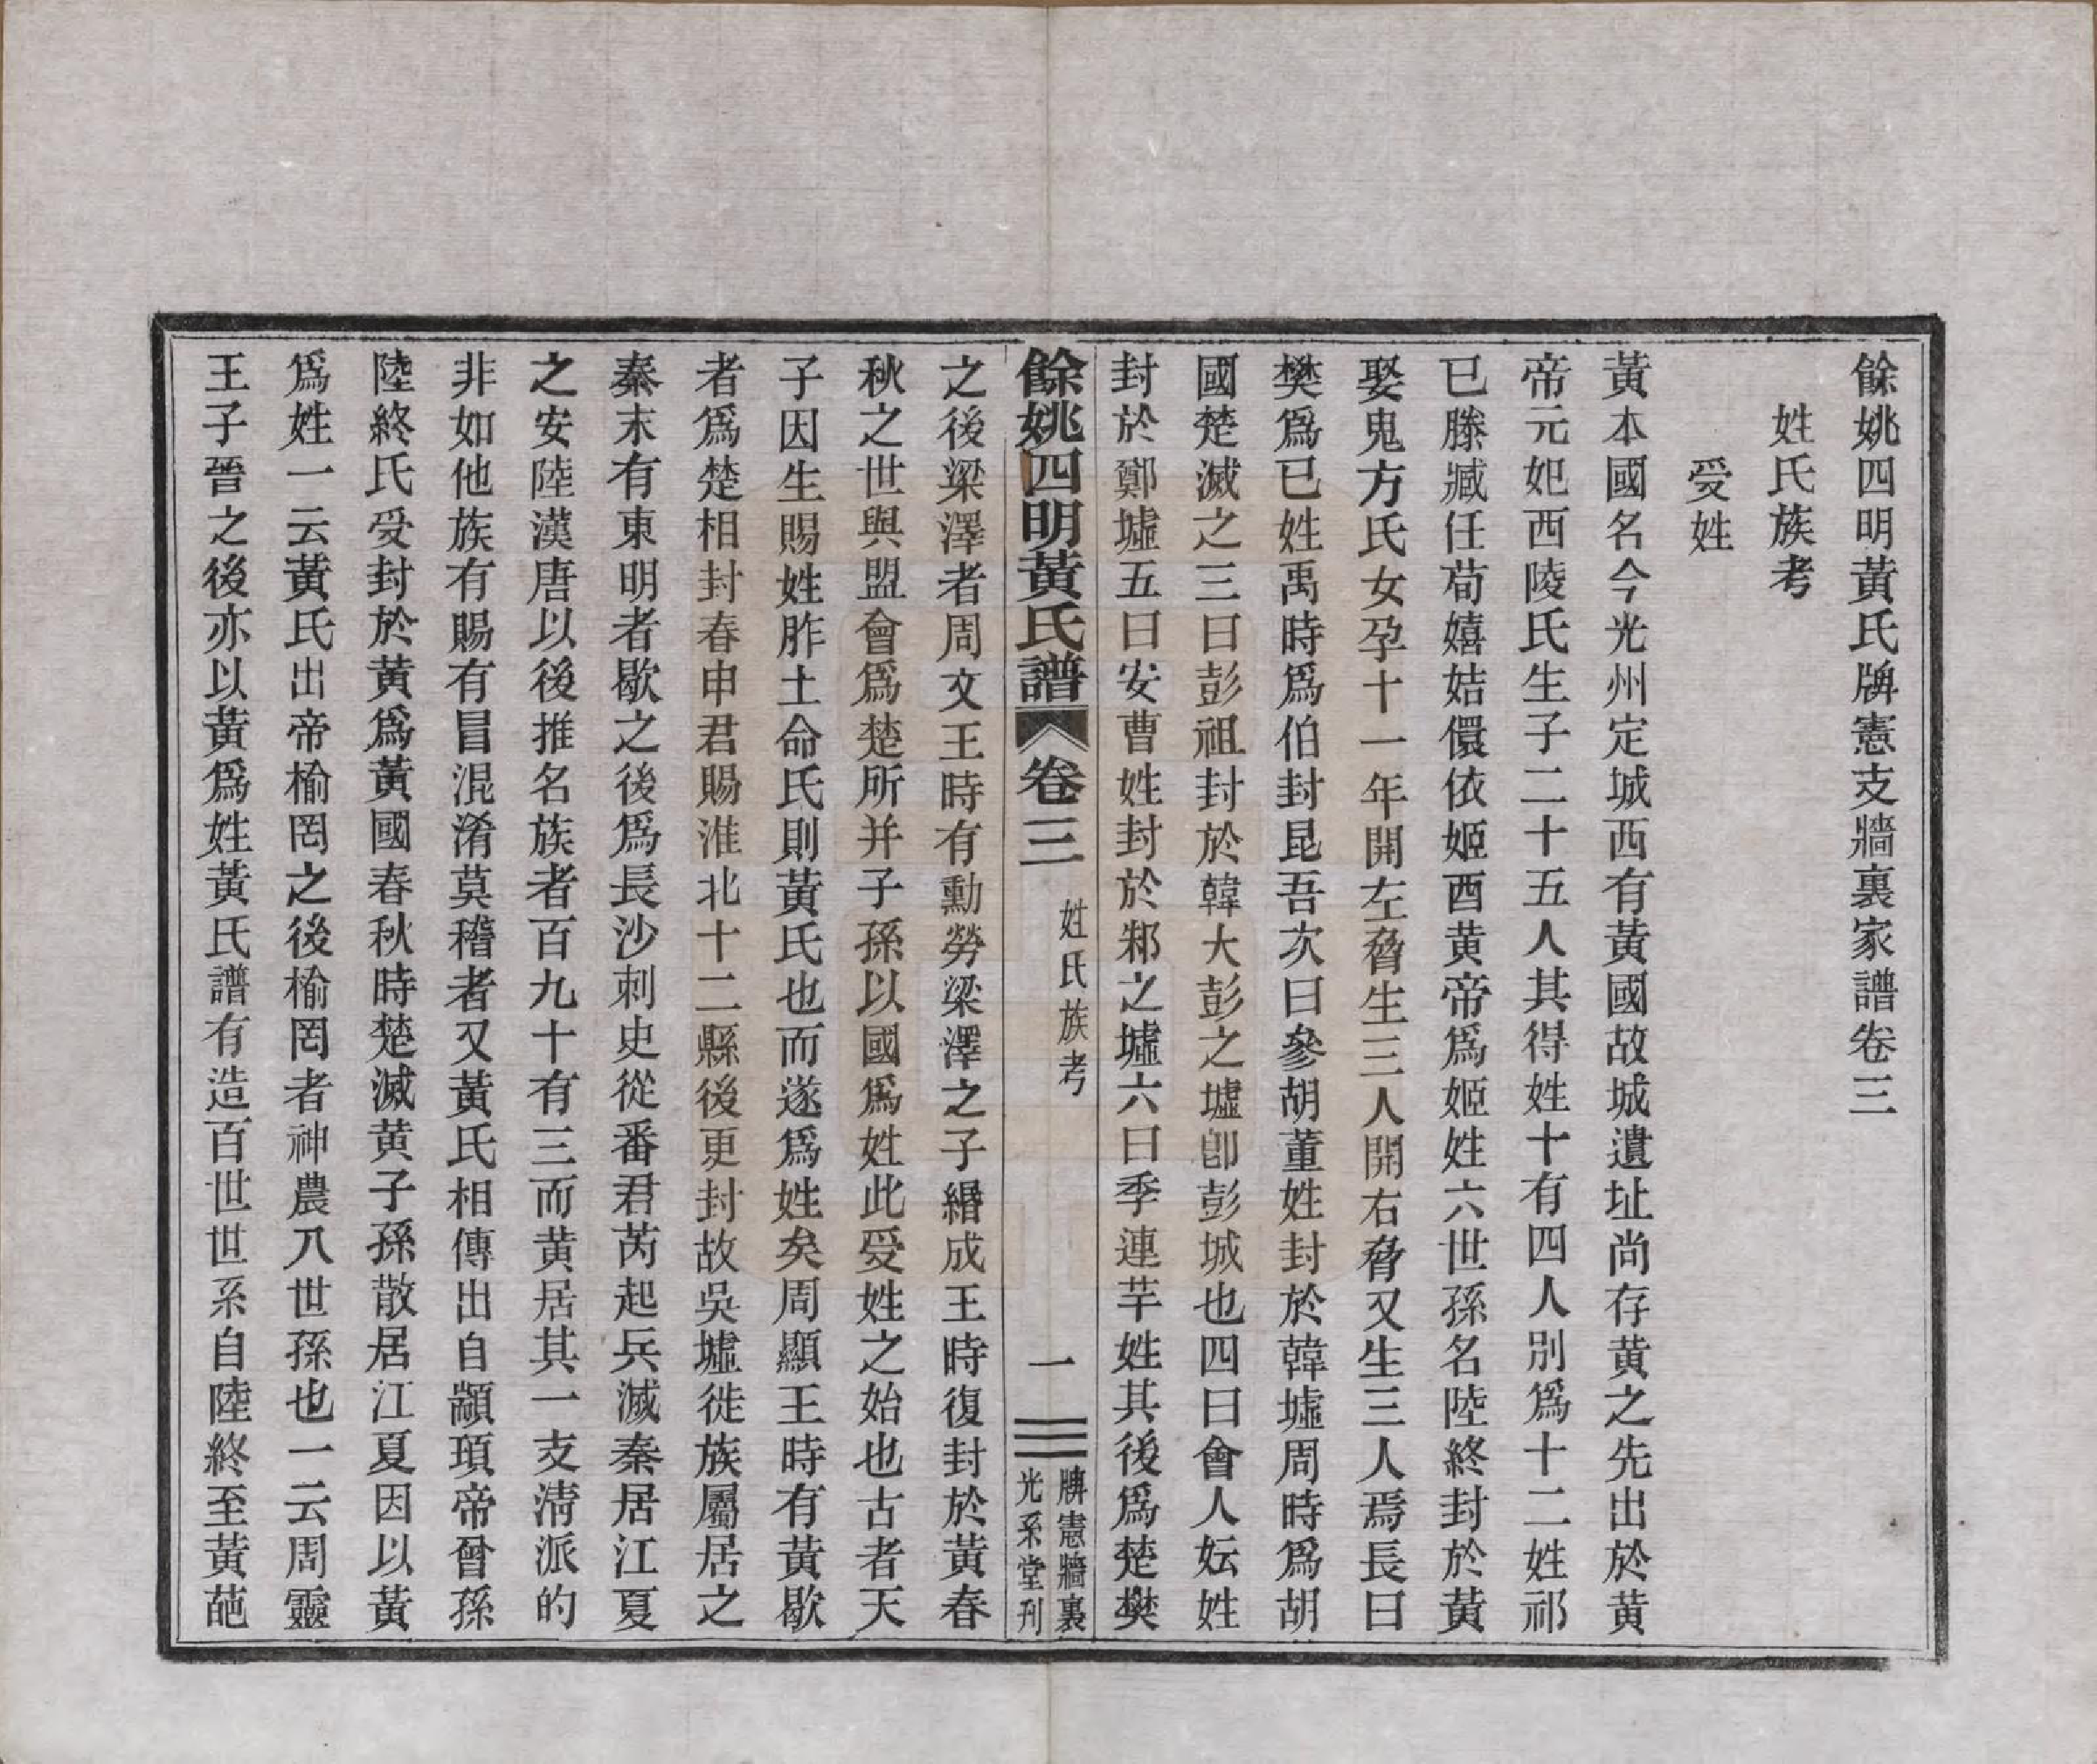 餘姚四明黃氏牌憲支牆裏家譜卷三
姓氏族考
受姓
黃本國名今光州定城西有黃國故城遺址尚存黃之先出於黃
帝元妃西陵氏生子二十五人其得姓十有四人別爲十二姓祁
已滕臧任荀嬉姞儇依姬酉黃帝爲姬姓六世孫名陸終封於黃
娶鬼方氏女孕十一年開左脅生三人開右脅又生三人焉長曰
樊爲已姓禹時爲伯封昆吾次曰參胡董姓封於韓墟周時爲胡
國楚滅之三曰彭祖封於韓大彭之墟卽彭城也四曰會人妘姓
封於鄭墟五曰安曹姓封於邾之墟六曰季連芈姓其後爲楚樊
餘姚四明黃氏譜 卷三 姓氏族考 一 牌憲牆裏
光系堂刊
之後梁澤者周文王時有勳勞梁澤之子緡成王時復封於黃春
秋之世與盟會爲楚所并子孫以國爲姓此受姓之始也古者天
子因生賜姓胙土命氏則黃氏也而遂爲姓矣周顯王時有黃歇
者爲楚相封春申君賜淮北十二縣後更封故吳墟徙族屬居之
秦末有東明者歇之後爲長沙刺史從番君芮起兵滅秦居江夏
之安陸漢唐以後推名族者百九十有三而黃居其一支淸派的
非如他族有賜有冒混淆莫稽者又黃氏相傳出自顓頊帝曾孫
陸終氏受封於黃爲黃國春秋時楚滅黃子孫散居江夏因以黃
爲姓一云黃氏出帝榆罔之後榆罔者神農八世孫也一云周靈
王子晉之後亦以黃爲姓黃氏譜有造百世世系自陸終至黃葩